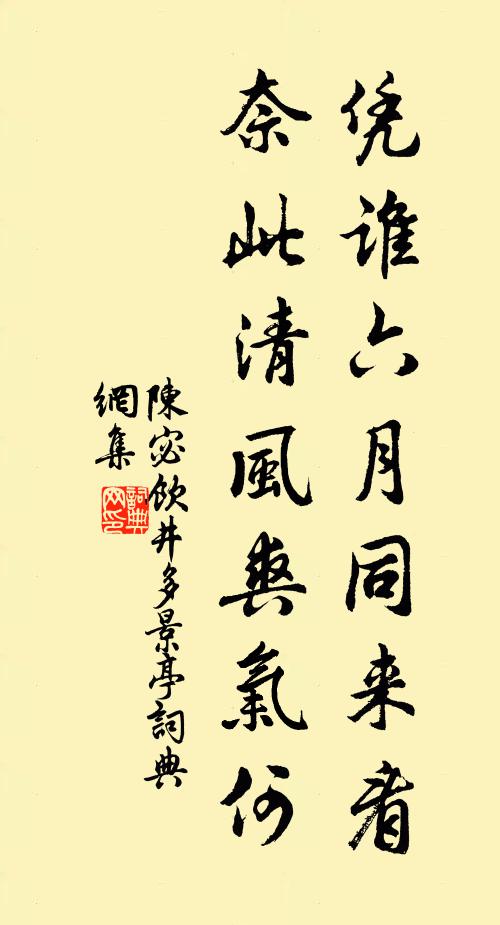 凭谁六月同来看
奈此清風爽氣何
陳宓飲井多景亭詞典
網集
詞典
网印